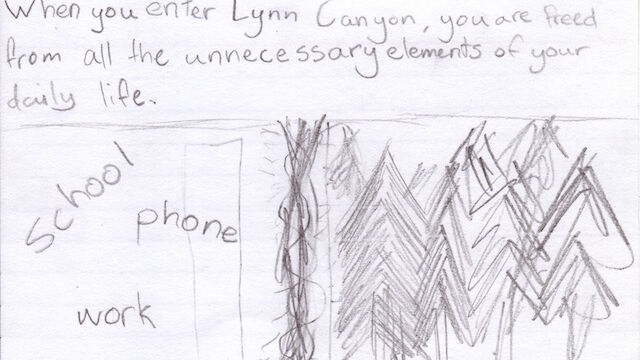 When you enter Lynn Canyon, you are freed
from all the unnecessary elements of your
daily life.
School
phone
work